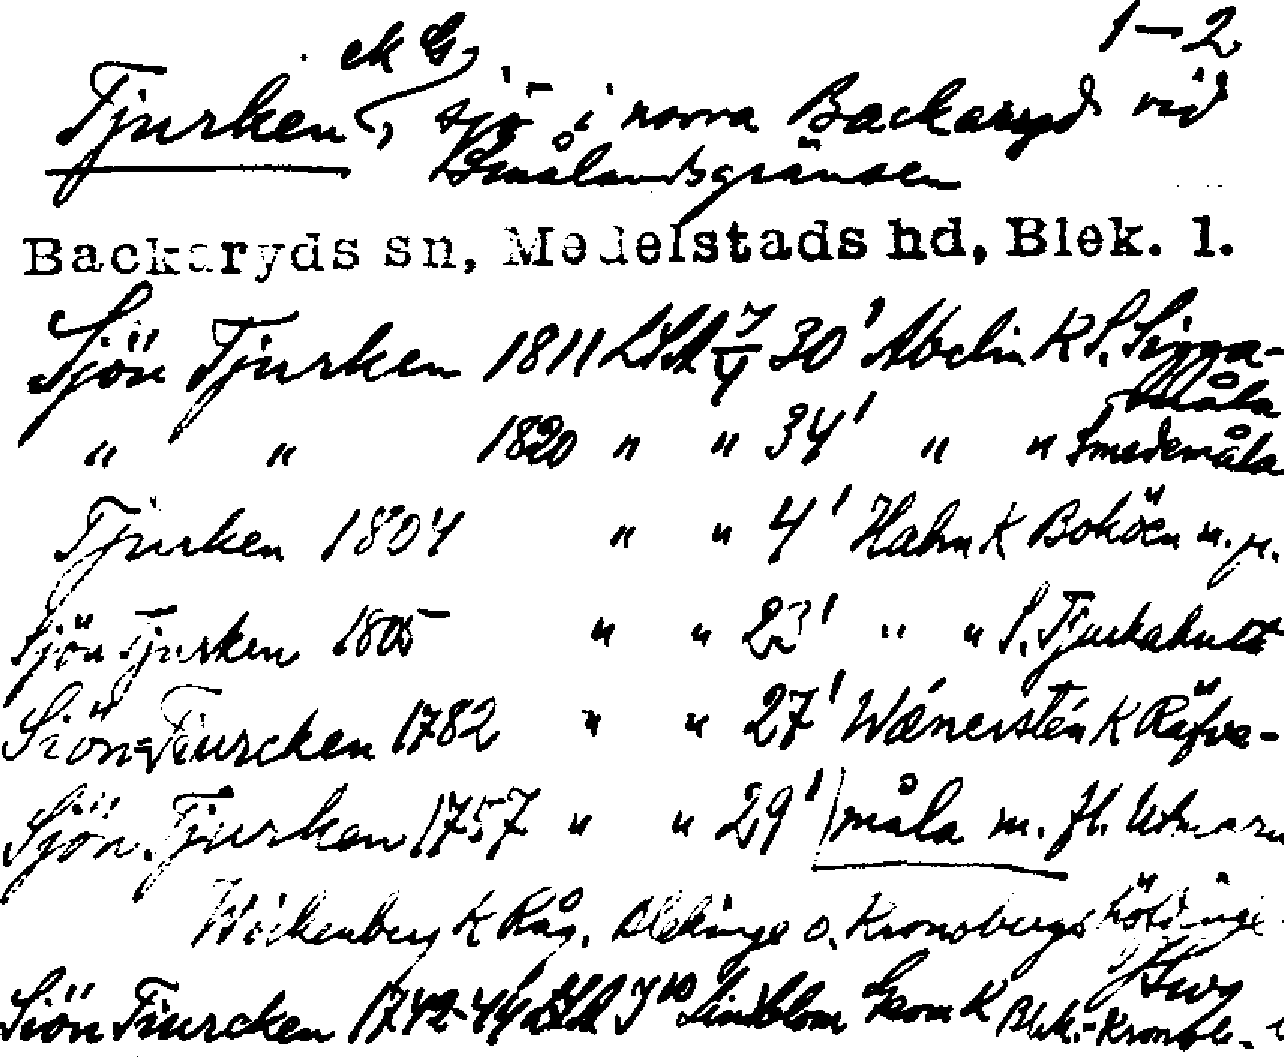 1-2
MG
Tjurken, sjö i norra Backaryd vid
Smålandsgränsen
Backaryds sn, Medelstads hd, Blek. l.
Sjön Tjurken 1811 LSA 7/4 30' Abelin K S. Sigga-
måla
" " 1820 " " 34' " " Smedemåla
Tjurken 1804 " " 4' Hahn K Boköen m. fl.
Sjön Tjurken 1805 " " 23' " " S. Tjurkahult
Siön Tiurcken 1782 " " 27' Wånerstén K Räfve-
Sjön Tjurken 1757 " " 29' måla m. fl. Utmark
Wickenberg K Råg. Blekinge o. Kronobergs höfdinge
Siön Tiurcken 1742-44 LSA J 10 Lindblom Geom K Blek.-Kronob.-